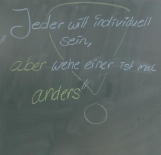 Jeder will individuell
sein,
aber wehe einer ist mal
anders"